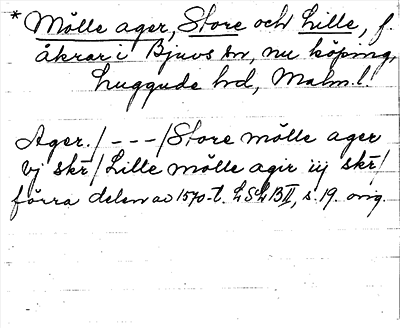 * Mölle ager, Store och Lille, f.
åkrar i Bjuvs sn, nu köping,
Luggude hd, Malm. l.
Ager. / - - - / Store mölle ager
vj skr / Lille mölle agir iij skr /
förra delen av 1570-t. LSLB II, s. 19. orig.